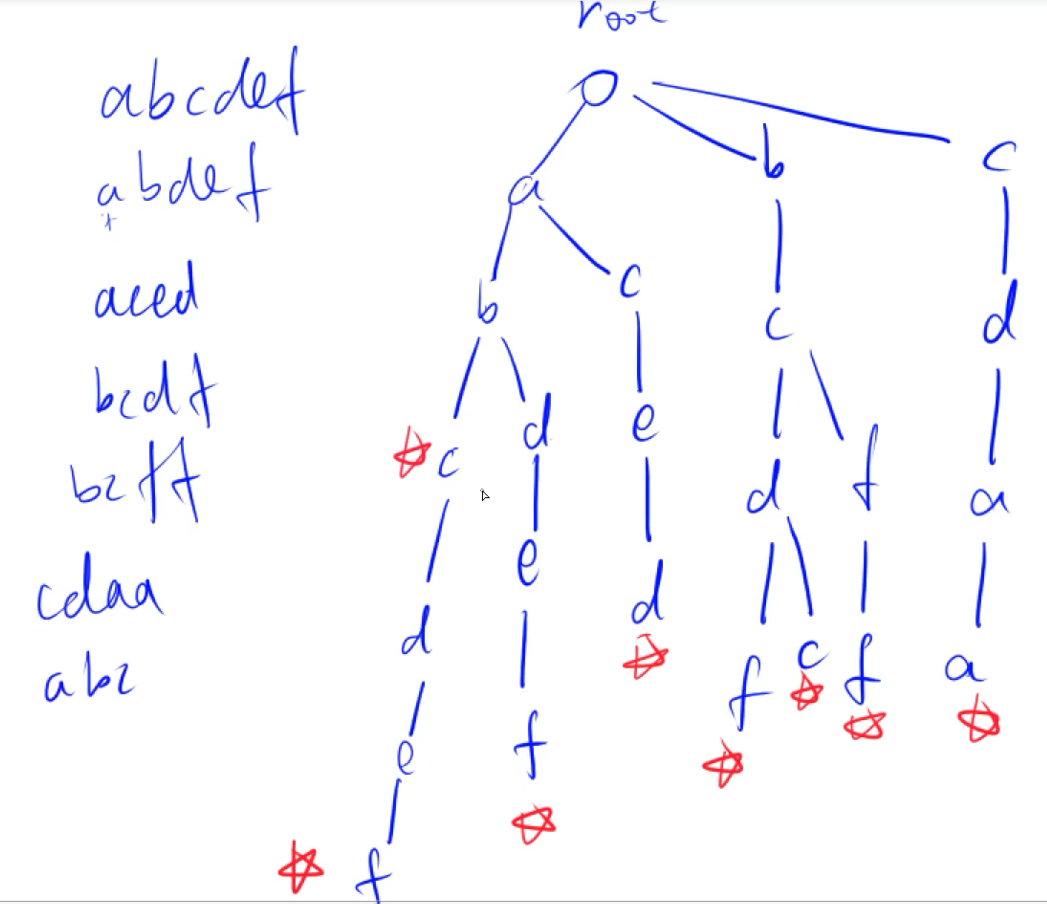 root
abcdef
abdef
aced
bcdf
bcff
cdaa
abc
a
b
c
b
c
c
d
c
d
e
d
f
a
d
e
d
f
c
f
a
e
f
f